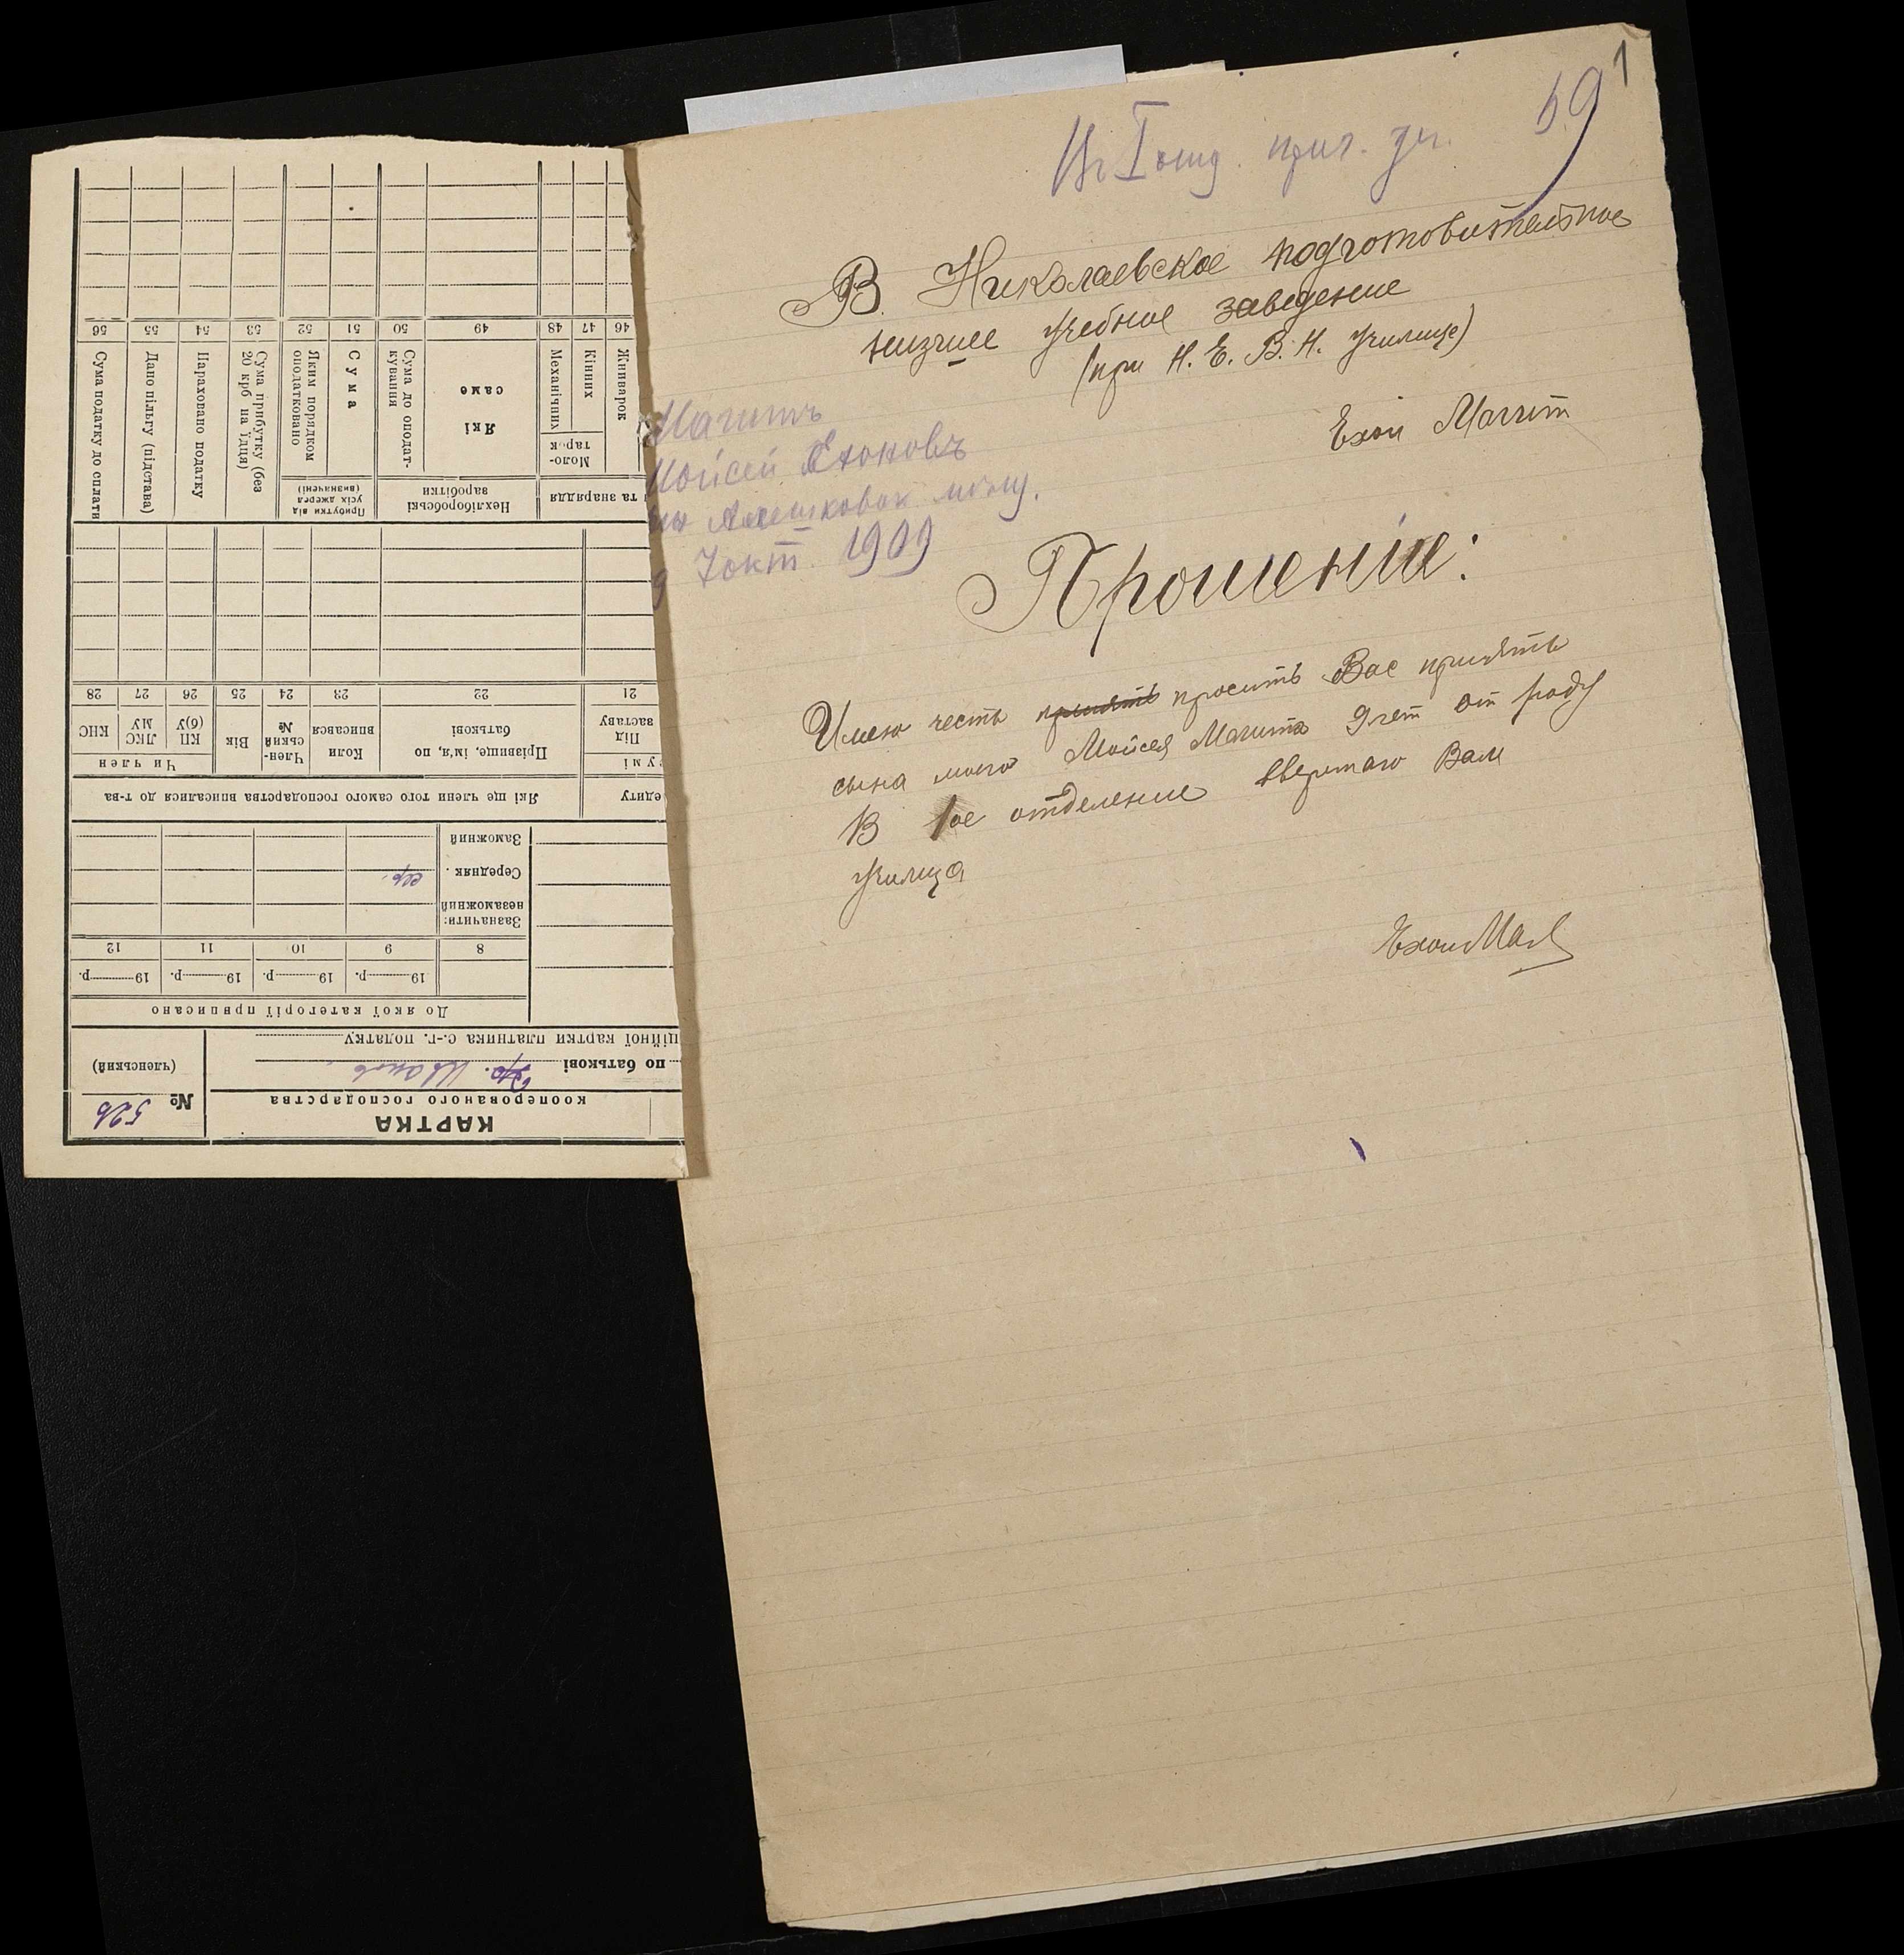 1
59
В I отд. приг. уч.
В. Николаевское подготовительное
низшее учебное заведение
(при Н. Е. В. Н. Училище)
Ехон Магит
Магитъ
Мойсей Ехоновъ
Алешковск мѣщ.
7 окт. 1909
Прошеніе:
Имею честь принять просить Вас принять
сына моего Мойсея Магита 9 лет от роду
В 1ое отделение вверенаго Вам
училища
Ехон Маг
КАРТКА
кооперованого господарства
№ 526
(членський)
по батькові Іванов
ційної картки платника с.-г. податку
До якої категорії приписано
19 р. 19 р. 19 р. 19 р.
8 9 10 11 12
Зазначити:
незаможний
Середняк. сер.
Заможний
едиту
Які ще члени того самого господарства вписалися до т-ва
сумі
Під заставу
Прізвище, ім'я, по батькові
Коли вписався
Членський №
Вік
Чи член
КП(б)У
ЛКСМУ
КНС
21 22 23 24 25 26 27 28
та знаряддя
Нехліборобські заробітки
Прибутки від усіх джерел (визначені)
Жниварок
Молотарок
Кінних
Механічних
Які саме
Сума до оподаткування
Сума
Яким порядком оподатковано
Сума прибутку (без 20 крб на їдця)
Нараховано податку
Дано пільгу (підстава)
Сума податку до сплати
46 47 48 49 50 51 52 53 54 55 56